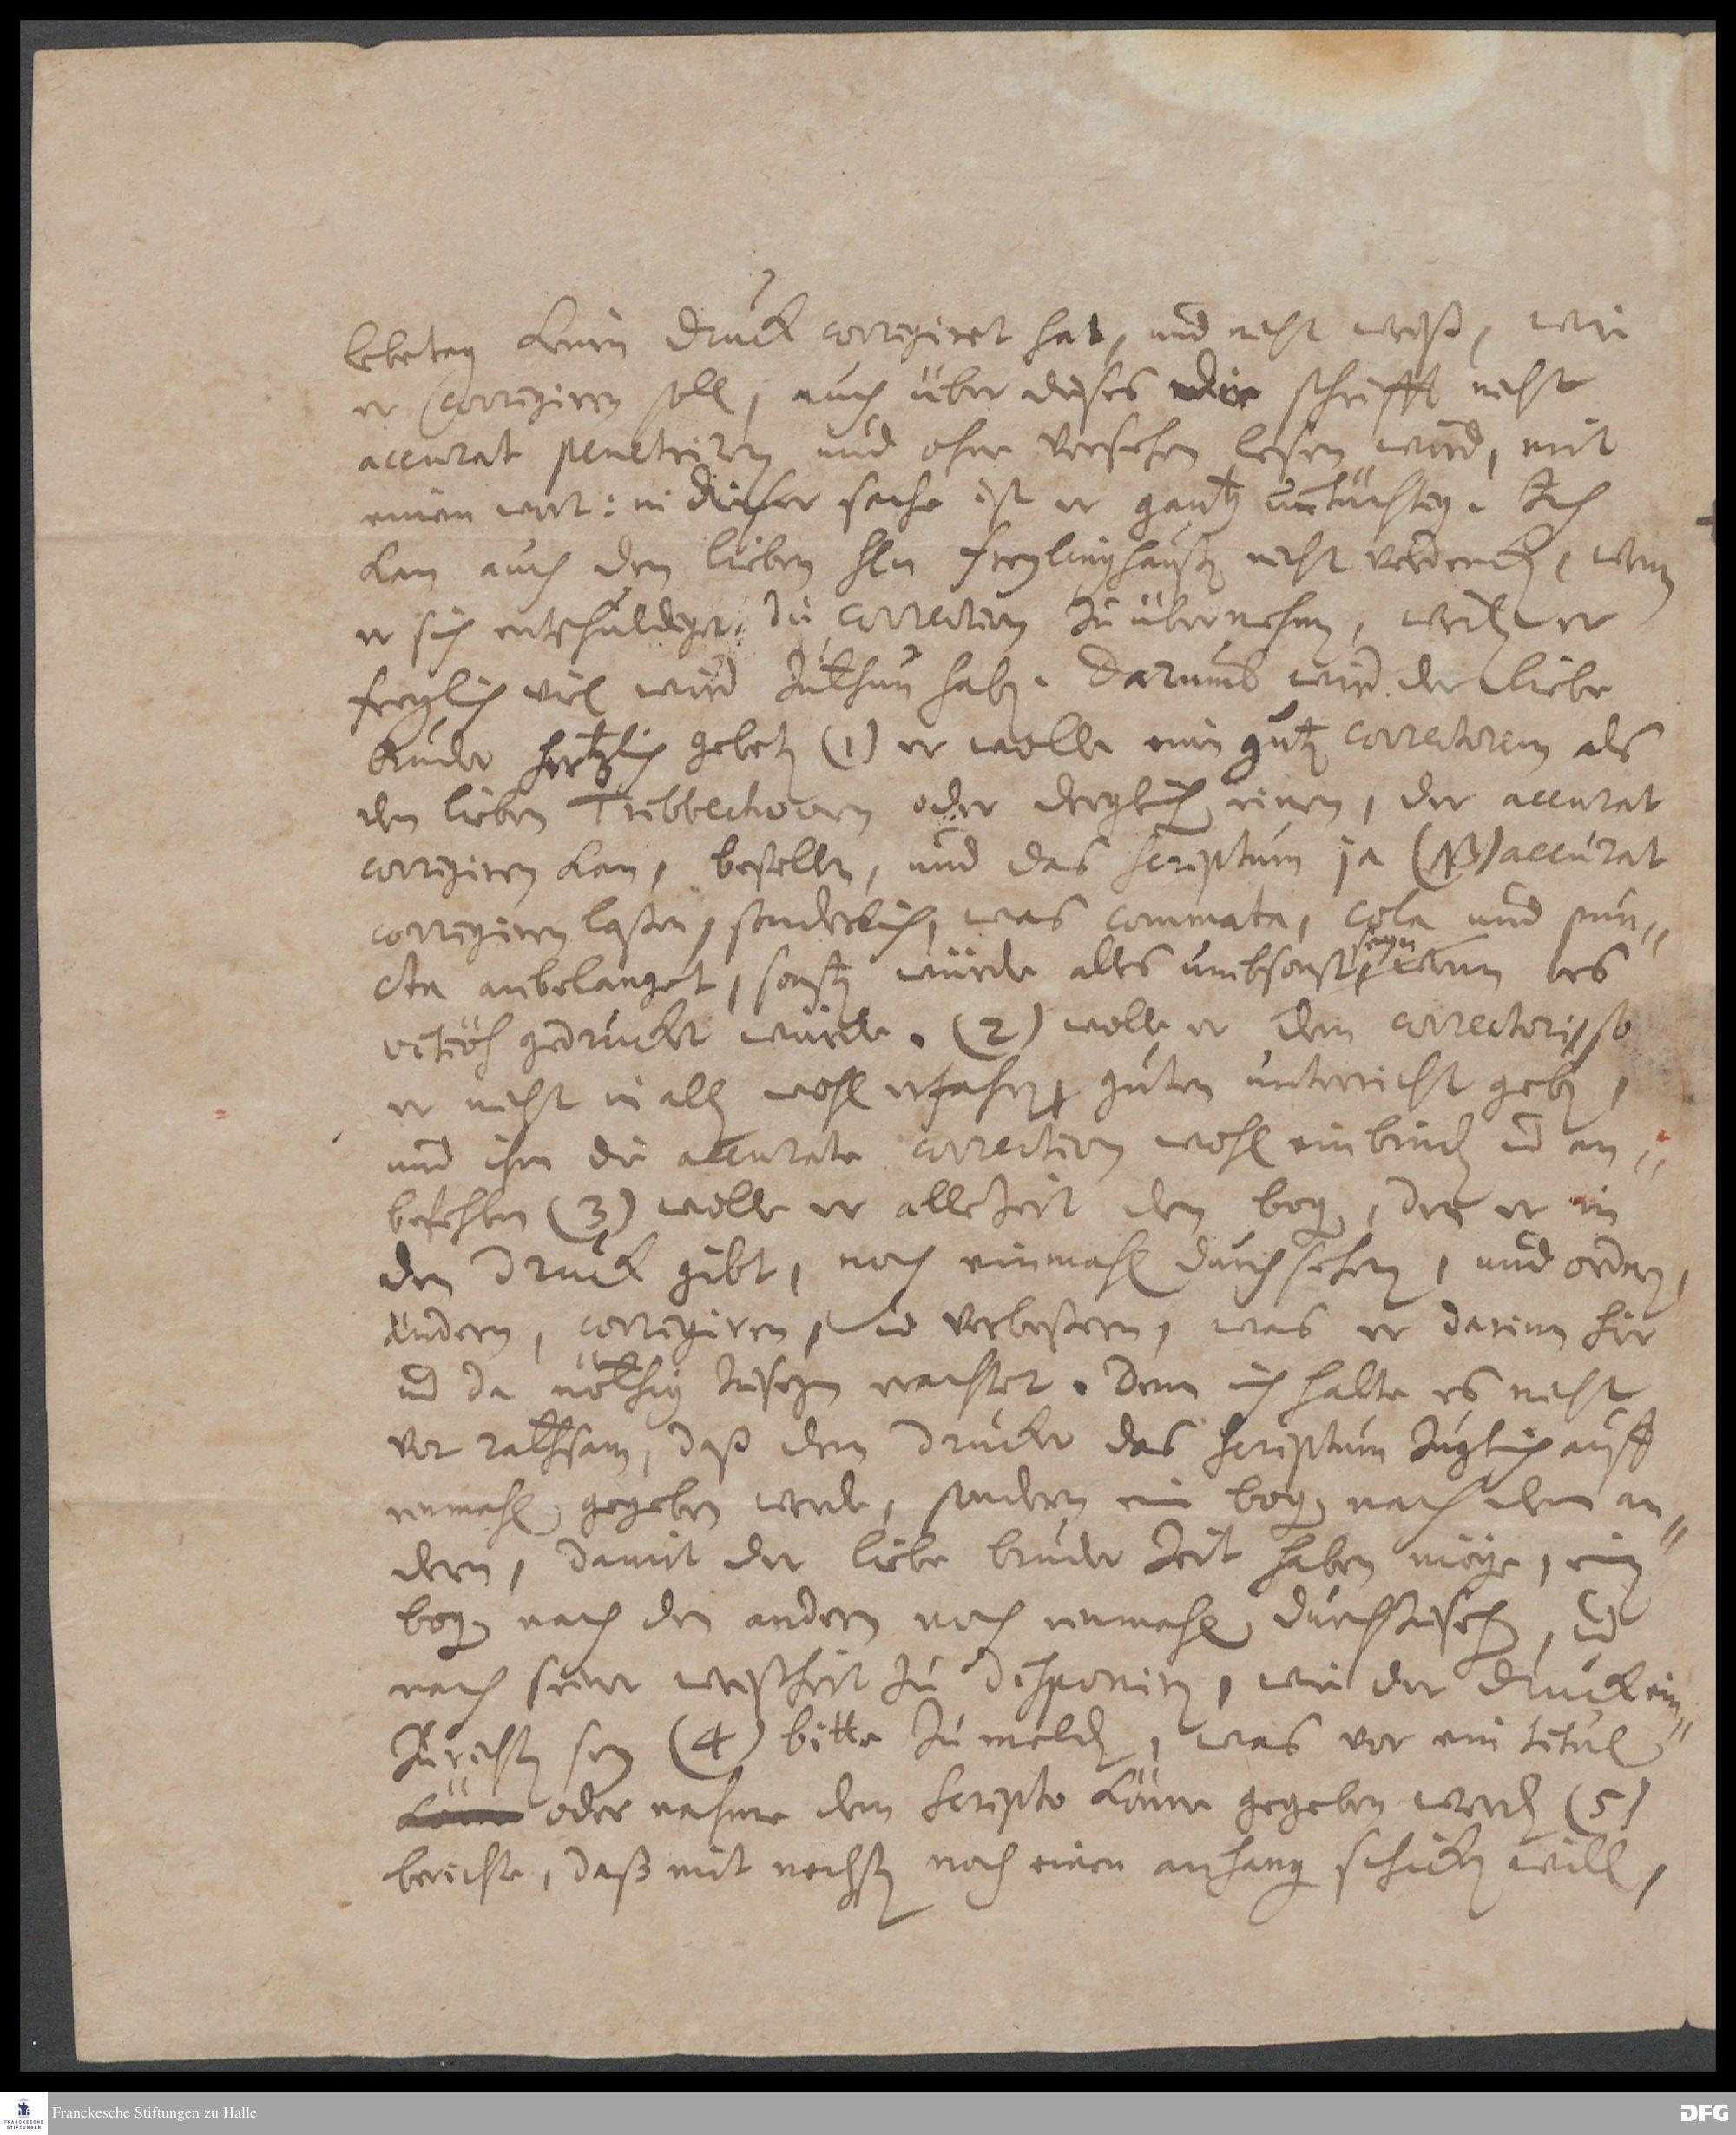 lebetag keinen Druck corrigiret hat, und nicht weiß, wie
er corrigiren soll, auch über dieses die schrifft nicht
accurat penetriren und ohne versehen lesen wird, mit
einem wort: in dieser sache ist er gantz untüchtig. Ich
kan auch den lieben Hln Freylinghausen nicht verdencken, wenn
er sich entschuldiget die correction zu übernehmen, weilen er
freylich viel wird zuthun haben. Darumb wird der liebe
bruder hertzlich gebeten (1) er wolle einen guten correctorem als
den lieben Tribbechoven oder dergleichen einen, der accurat
corrigiren kan, bestellen, und das scriptum ja accurat
corrigiren lassen, sonderlich, was commata, cola und pun„
cta anbelanget, sonsten würde alles umbsonst seyn, wenn es
vitiös gedruckt würde. (2) wolle er dem correctori, so
er nicht in allen wohl erfahren, guten unterricht geben,
und ihm die accurate correction wohl einbinden und an„
befehlen (3) wolle er allezeit den bogen, den er in
den Druck gibt, noch einmahl durchsehen, und ordnen,
ändern, corrigiren, und verbessern, was er darinn hir
und da nöthig zuseyn erachtet. Denn ich halte es nicht
vor rathsam, daß dem drucker das scriptum zugleich auff
einmahl gegeben werde, sondern ein bogen nach dem an„
dern, damit der liebe bruder Zeit haben möge, einen
bogen nach den andern noch einmahl durchzusehen, und
nach seiner weißheit zu disponiren, wie der Druck ein„
zurichten sey (4) bitte zu melden, was vor ein titul
oder nahme dem scripto könne gegeben werden (5)
berichte, daß mit nechsten noch einen anhang schicken will,
Franckesche Stiftungen zu Halle
FRANCKESCHE STIFTUNGEN
DFG